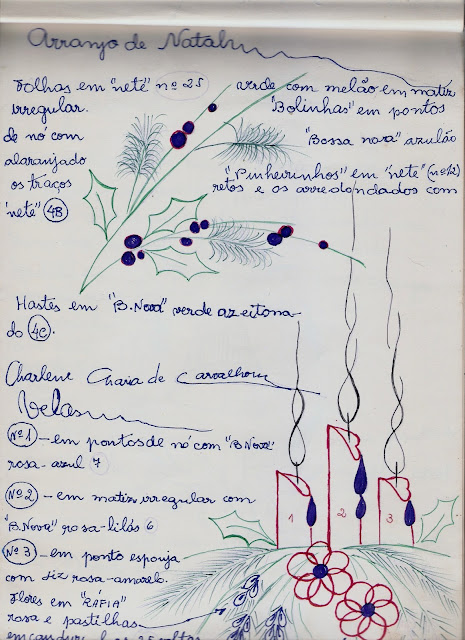 Arranjo de Natal
Folhas em "neté" nº 25 verde com melão em matiz
irregular. "Bolinhas" em pontos
de nó com "Bossa nova" azulão
alaranjado "Pinheirinhos" em "neté" (nº12)
os traços retos e os arredondados com
"neté" 4B
Hastes em "B. Nova" verde azeitona-
do 4C.
Charlene de Carvalho
Velas
Nº 1 - em pontos de nó com "B. Nova"
rosa-azul 7
Nº 2 - em matiz irregular com
"B. Nova" rosa-lilás 6
Nº 3 - em ponto esponja
com giz rosa-amarelo.
Flores em "RÁFIA"
rosa e pastilhas
1
2
3